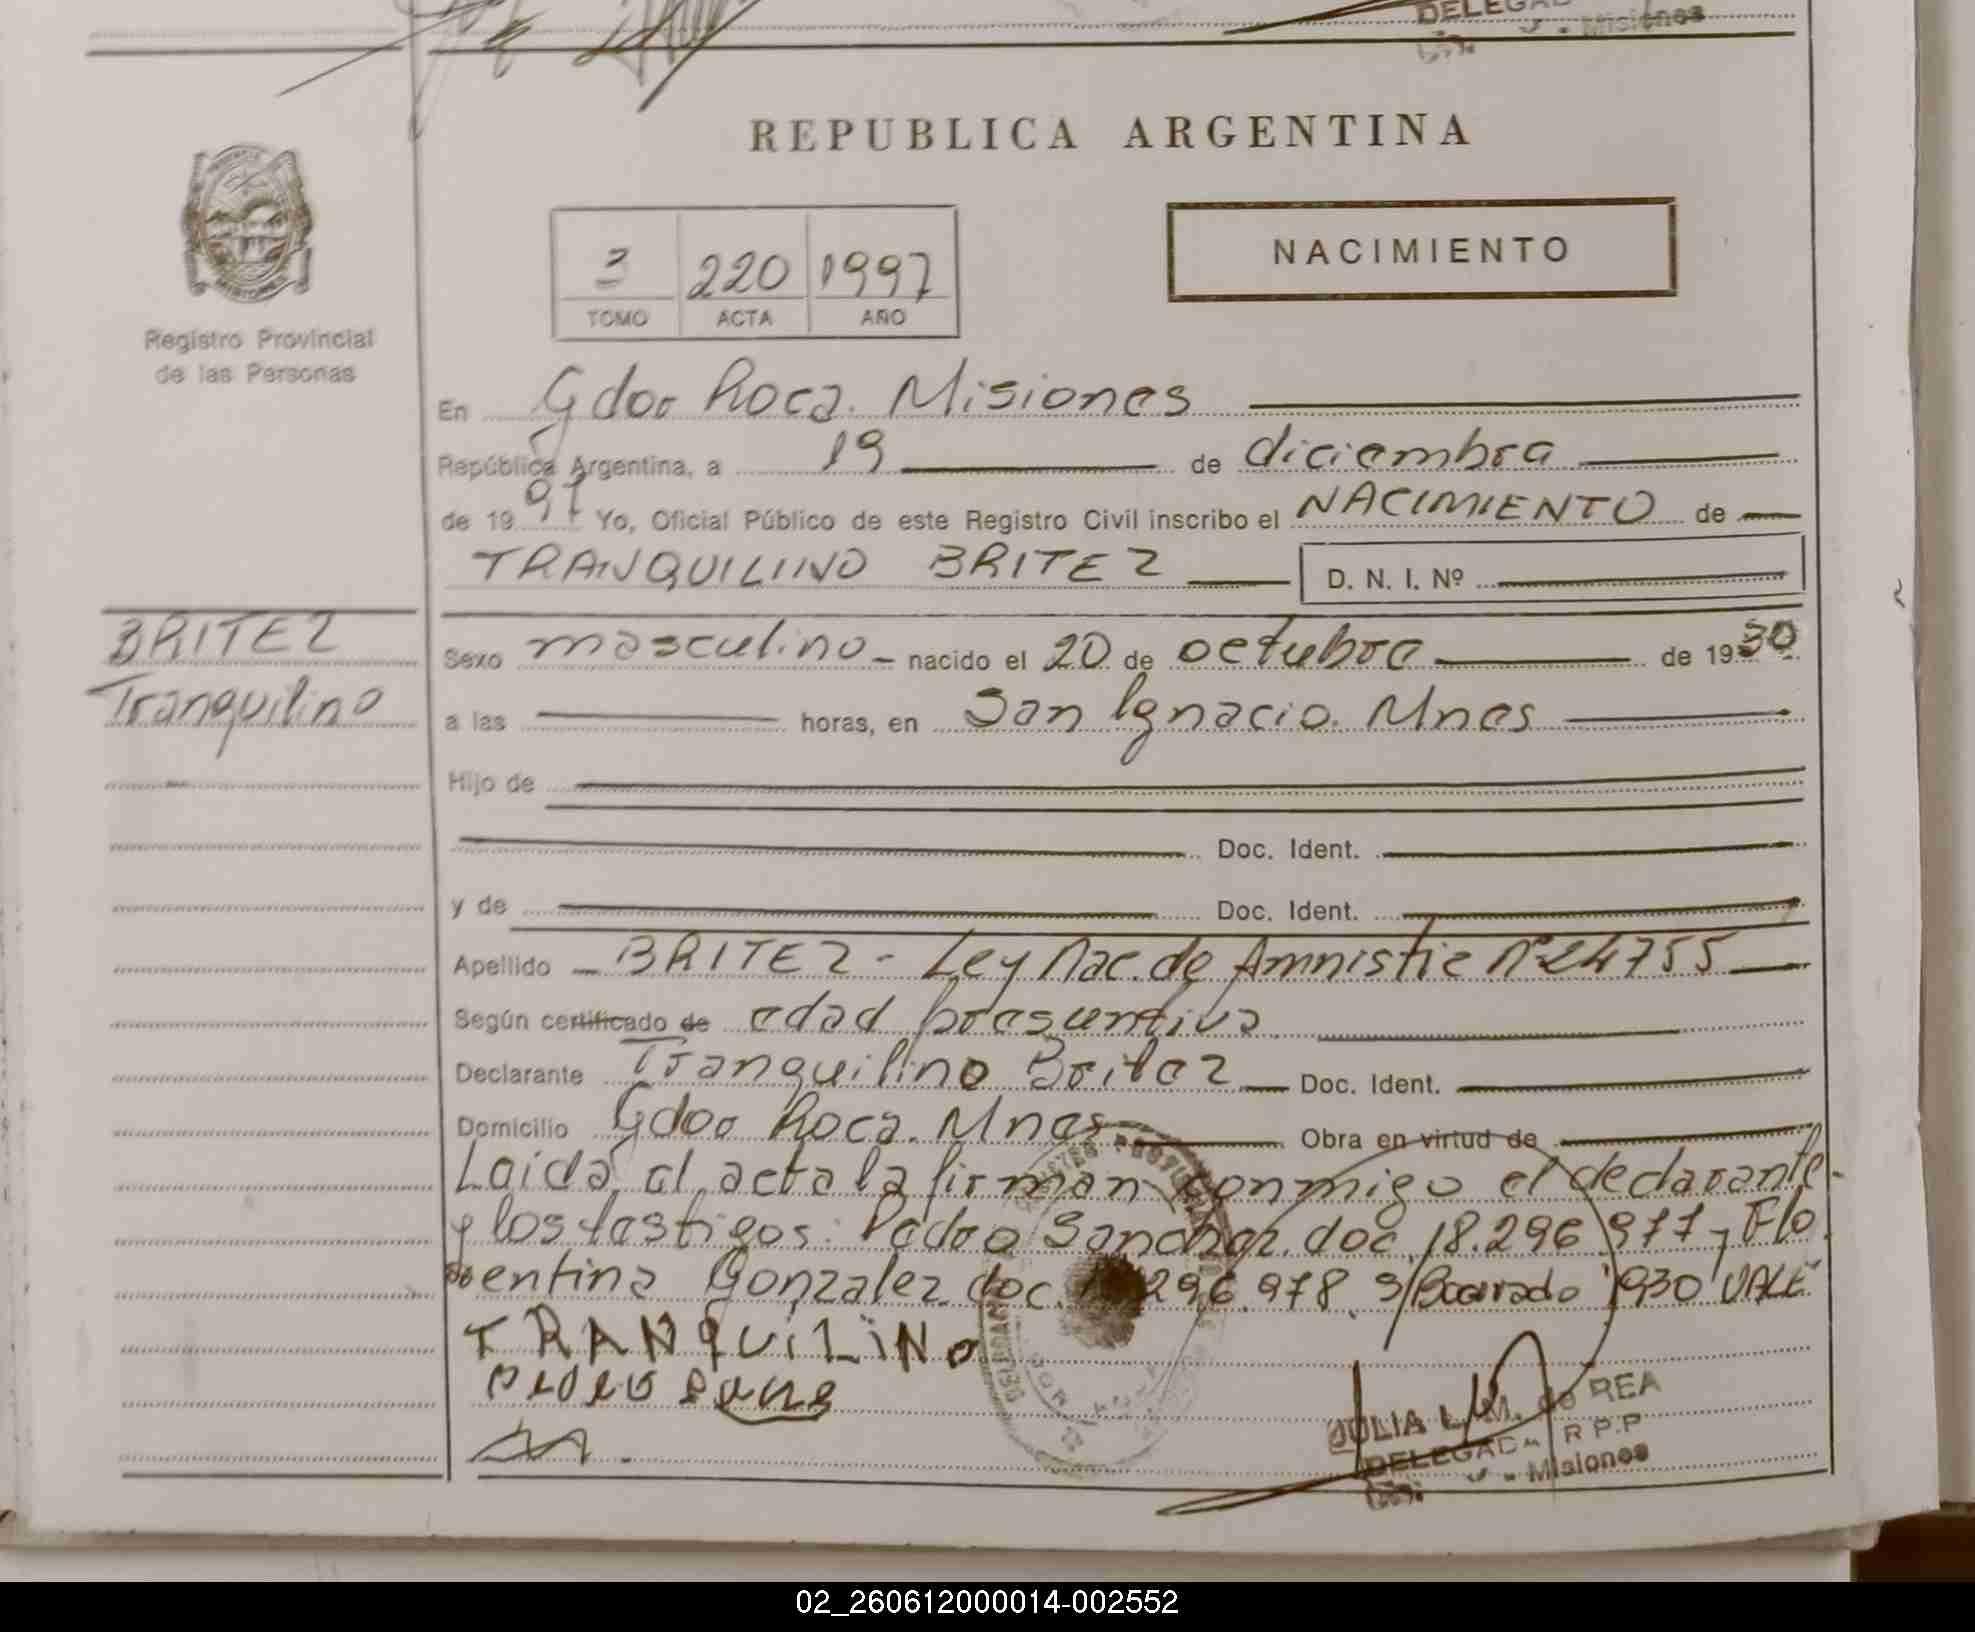 DELEGAD
Misiones
REPUBLICA ARGENTINA
NACIMIENTO
220 1997
TOMO ACTA AÑO
Registro Provincial
de las Personas
En Gdor Roca. Misiones
República Argentina, a 19 de diciembre
de 1997 Yo, Oficial Público de este Registro Civil inscribo el NACIMIENTO de
TRANQUILINO BRITEZ D. N. I. Nº
BRITEZ
Tranquilino
Sexo masculino - nacido el 20 de octubre de 1930
a las horas, en San Ignacio. Mnes
Hijo de
Doc. Ident.
y de Doc. Ident.
Apellido - BRITEZ - Ley Nac. de Amnistie Nº 24755
Según certificado de edad presuntiva
Declarante Tranquilino Britez Doc. Ident.
Domicilio Gdor Roca. Mnes Obra en virtud de
Laida el acta la firman conmigo el declarante
y los testigos: Pedro Sanchez. doc. 18.296.977 y Flo
rentina Gonzalez doc. 296.978. s/Borrado 1930 VALE
TRANQUILINO
JULIA L. M. de REA
DELEGADA R.P.P
Misiones
02_260612000014-002552